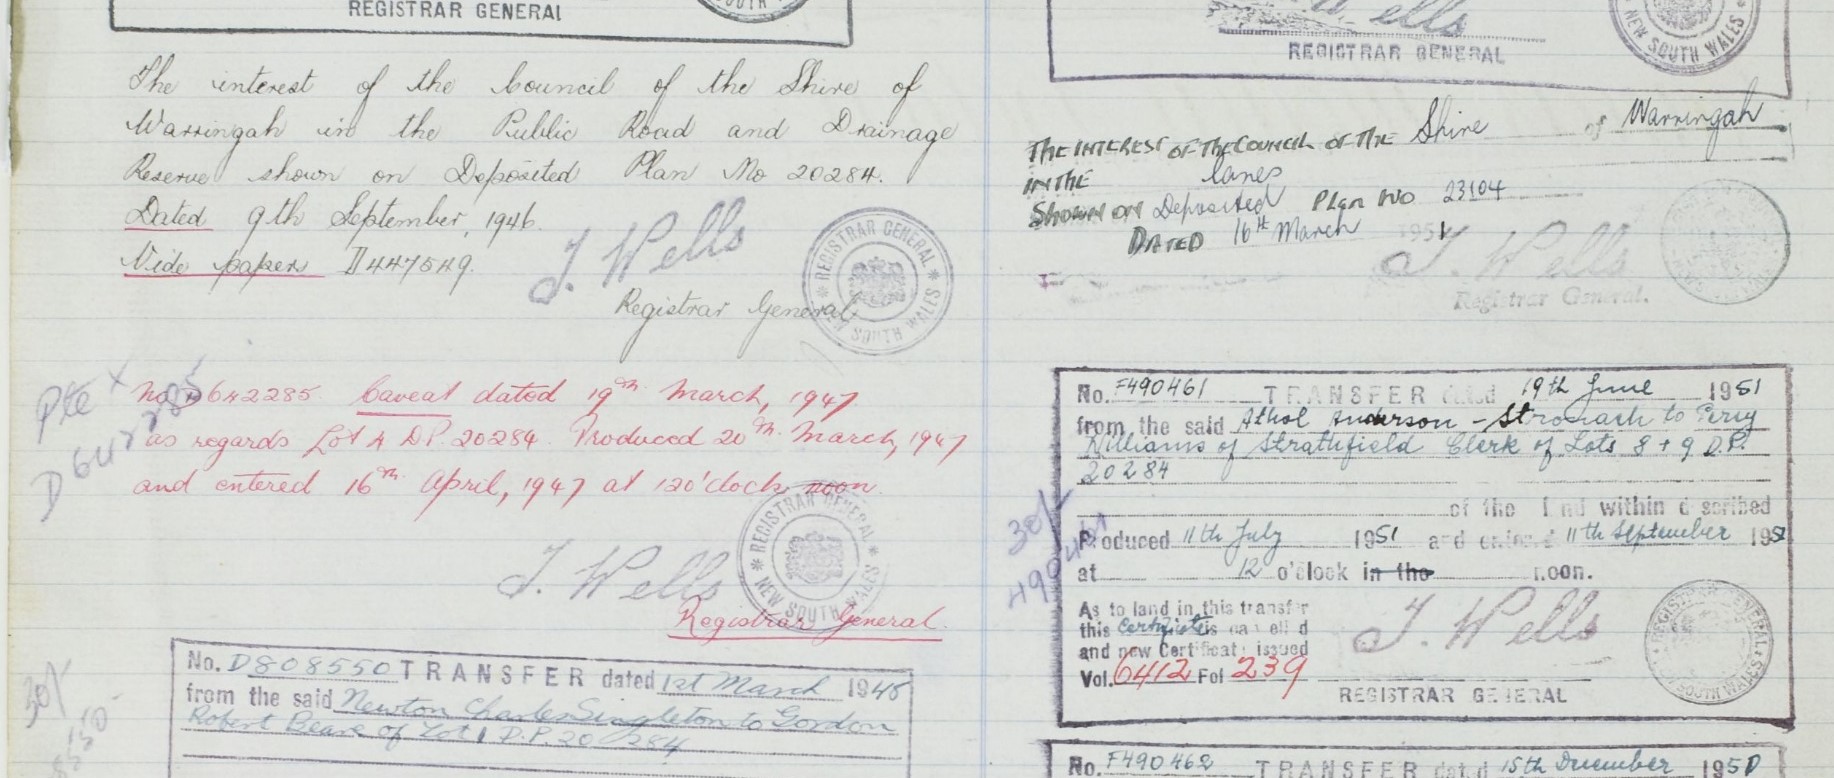 REGISTRAR GENERAL
The interest of the Council of the Shire of
Warringah in the Public Road and Drainage
Reserve shown on Deposited Plan No 20284.
Dated 9th September, 1946.
Vide paper D447549.
J. Wells
Registrar General
REGISTRAR GENERAL
NEW SOUTH WALES
Pte X
D642285
No D642285. Caveat dated 19th March, 1947
as regards Lot 4 D.P. 20284. Produced 20th March, 1947
and entered 16th April, 1947 at 12 o'clock noon.
J. Wells
REGISTRAR GENERAL
NEW SOUTH WALES
Registrar General.
30/-
No. D808550 TRANSFER dated 1st March 1948
from the said Newton Charles Singleton to Gordon
Robert Beare of Lot 1 D.P. 20284
Wells
REGISTRAR GENERAL
NEW SOUTH WALES
THE INTEREST OF THE COUNCIL OF THE Shire of Warringah
IN THE lanes
SHOWN ON Deposited Plan No 23104
DATED 16th March 1951
J. Wells
Registrar General.
30/-
490461
No. F490461 TRANSFER dated 19th June 1951
from the said Athol Anderson-Stronach to Percy
Williams of Strathfield Clerk of Lots 8 + 9 D.P.
20284
of the land within described
Produced 11th July 1951 and entered 11th September 1951
at 12 o'clock in the noon.
As to land in this transfer
this Certificate is cancelled
and new Certificate issued
Vol. 6412 Fol 239
J. Wells
REGISTRAR GENERAL
REGISTRAR GENERAL
NEW SOUTH WALES
No. F490462 TRANSFER dated 15th December 1950